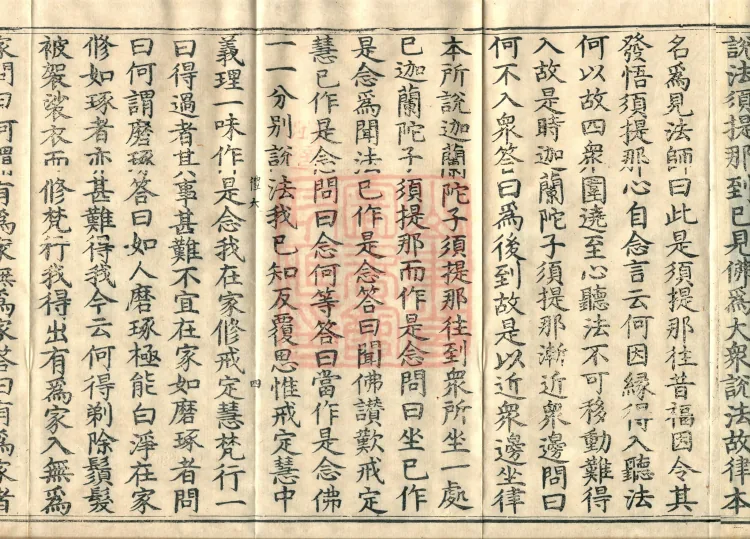 說法須提那到已見佛爲大衆說法故律本
名爲見法師曰此是須提那往昔福因令其
發悟須提那心自念言云何因緣得入聽法
何以故四衆圍遶至心聽法不可移動難得
入故是時迦蘭陀子須提那漸近衆邊問曰
何不入衆答曰爲後到故是以近衆邊坐律
本所說迦蘭陀子須提那往到衆所坐一處
已迦蘭陀子須提那而作是念問曰坐已作
是念爲聞法已作是念答曰聞佛讚歎戒定
慧已作是念問曰念何等答曰當作是念佛
一一分別說法我已知反覆思惟戒定慧中
四
義理一味作是念我在家修戒定慧梵行一
曰得過者其事甚難不宜在家如磨琢者問
曰何謂磨琢答曰如人磨琢極能白淨在家
修如琢者亦甚難得我今云何得剃除鬚髮
被袈裟衣而修梵行我得出有爲家入無爲
家問曰何謂有爲家無爲家答曰有爲家者